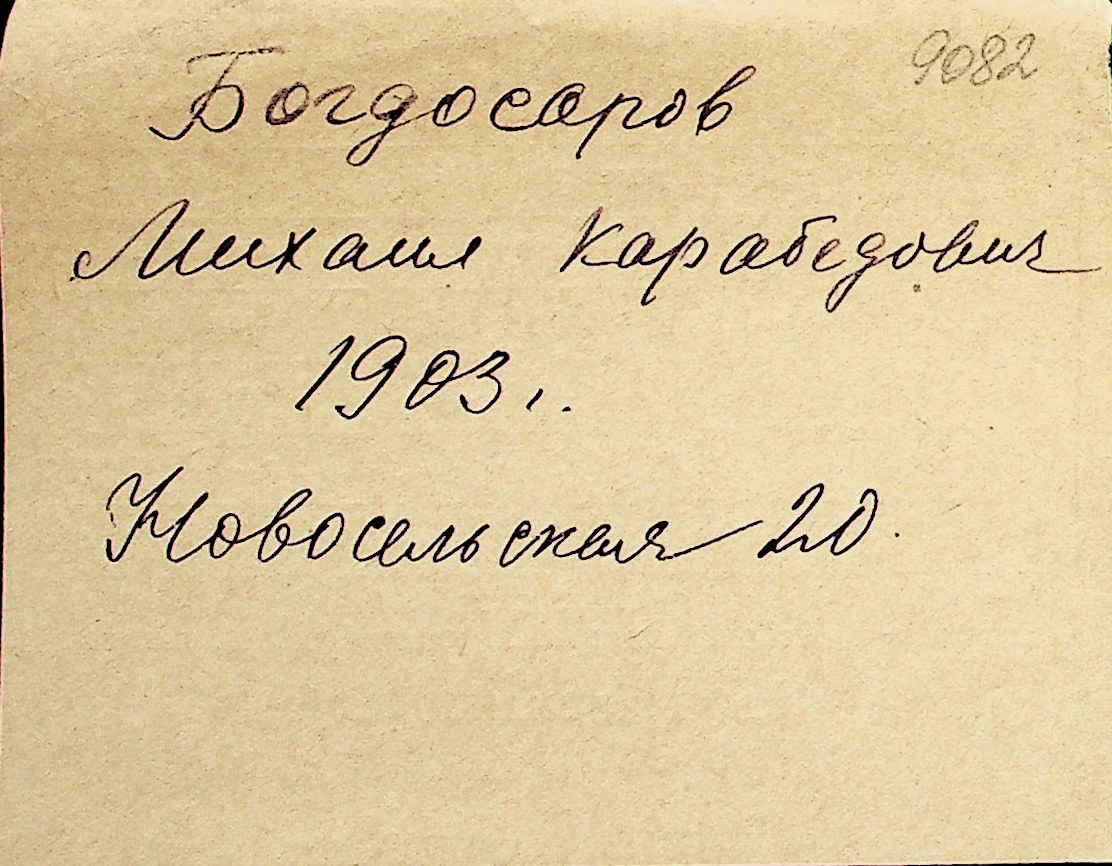 9082
Богдосаров
Михаил Карабедович
1903 г.
Новосельская 20.